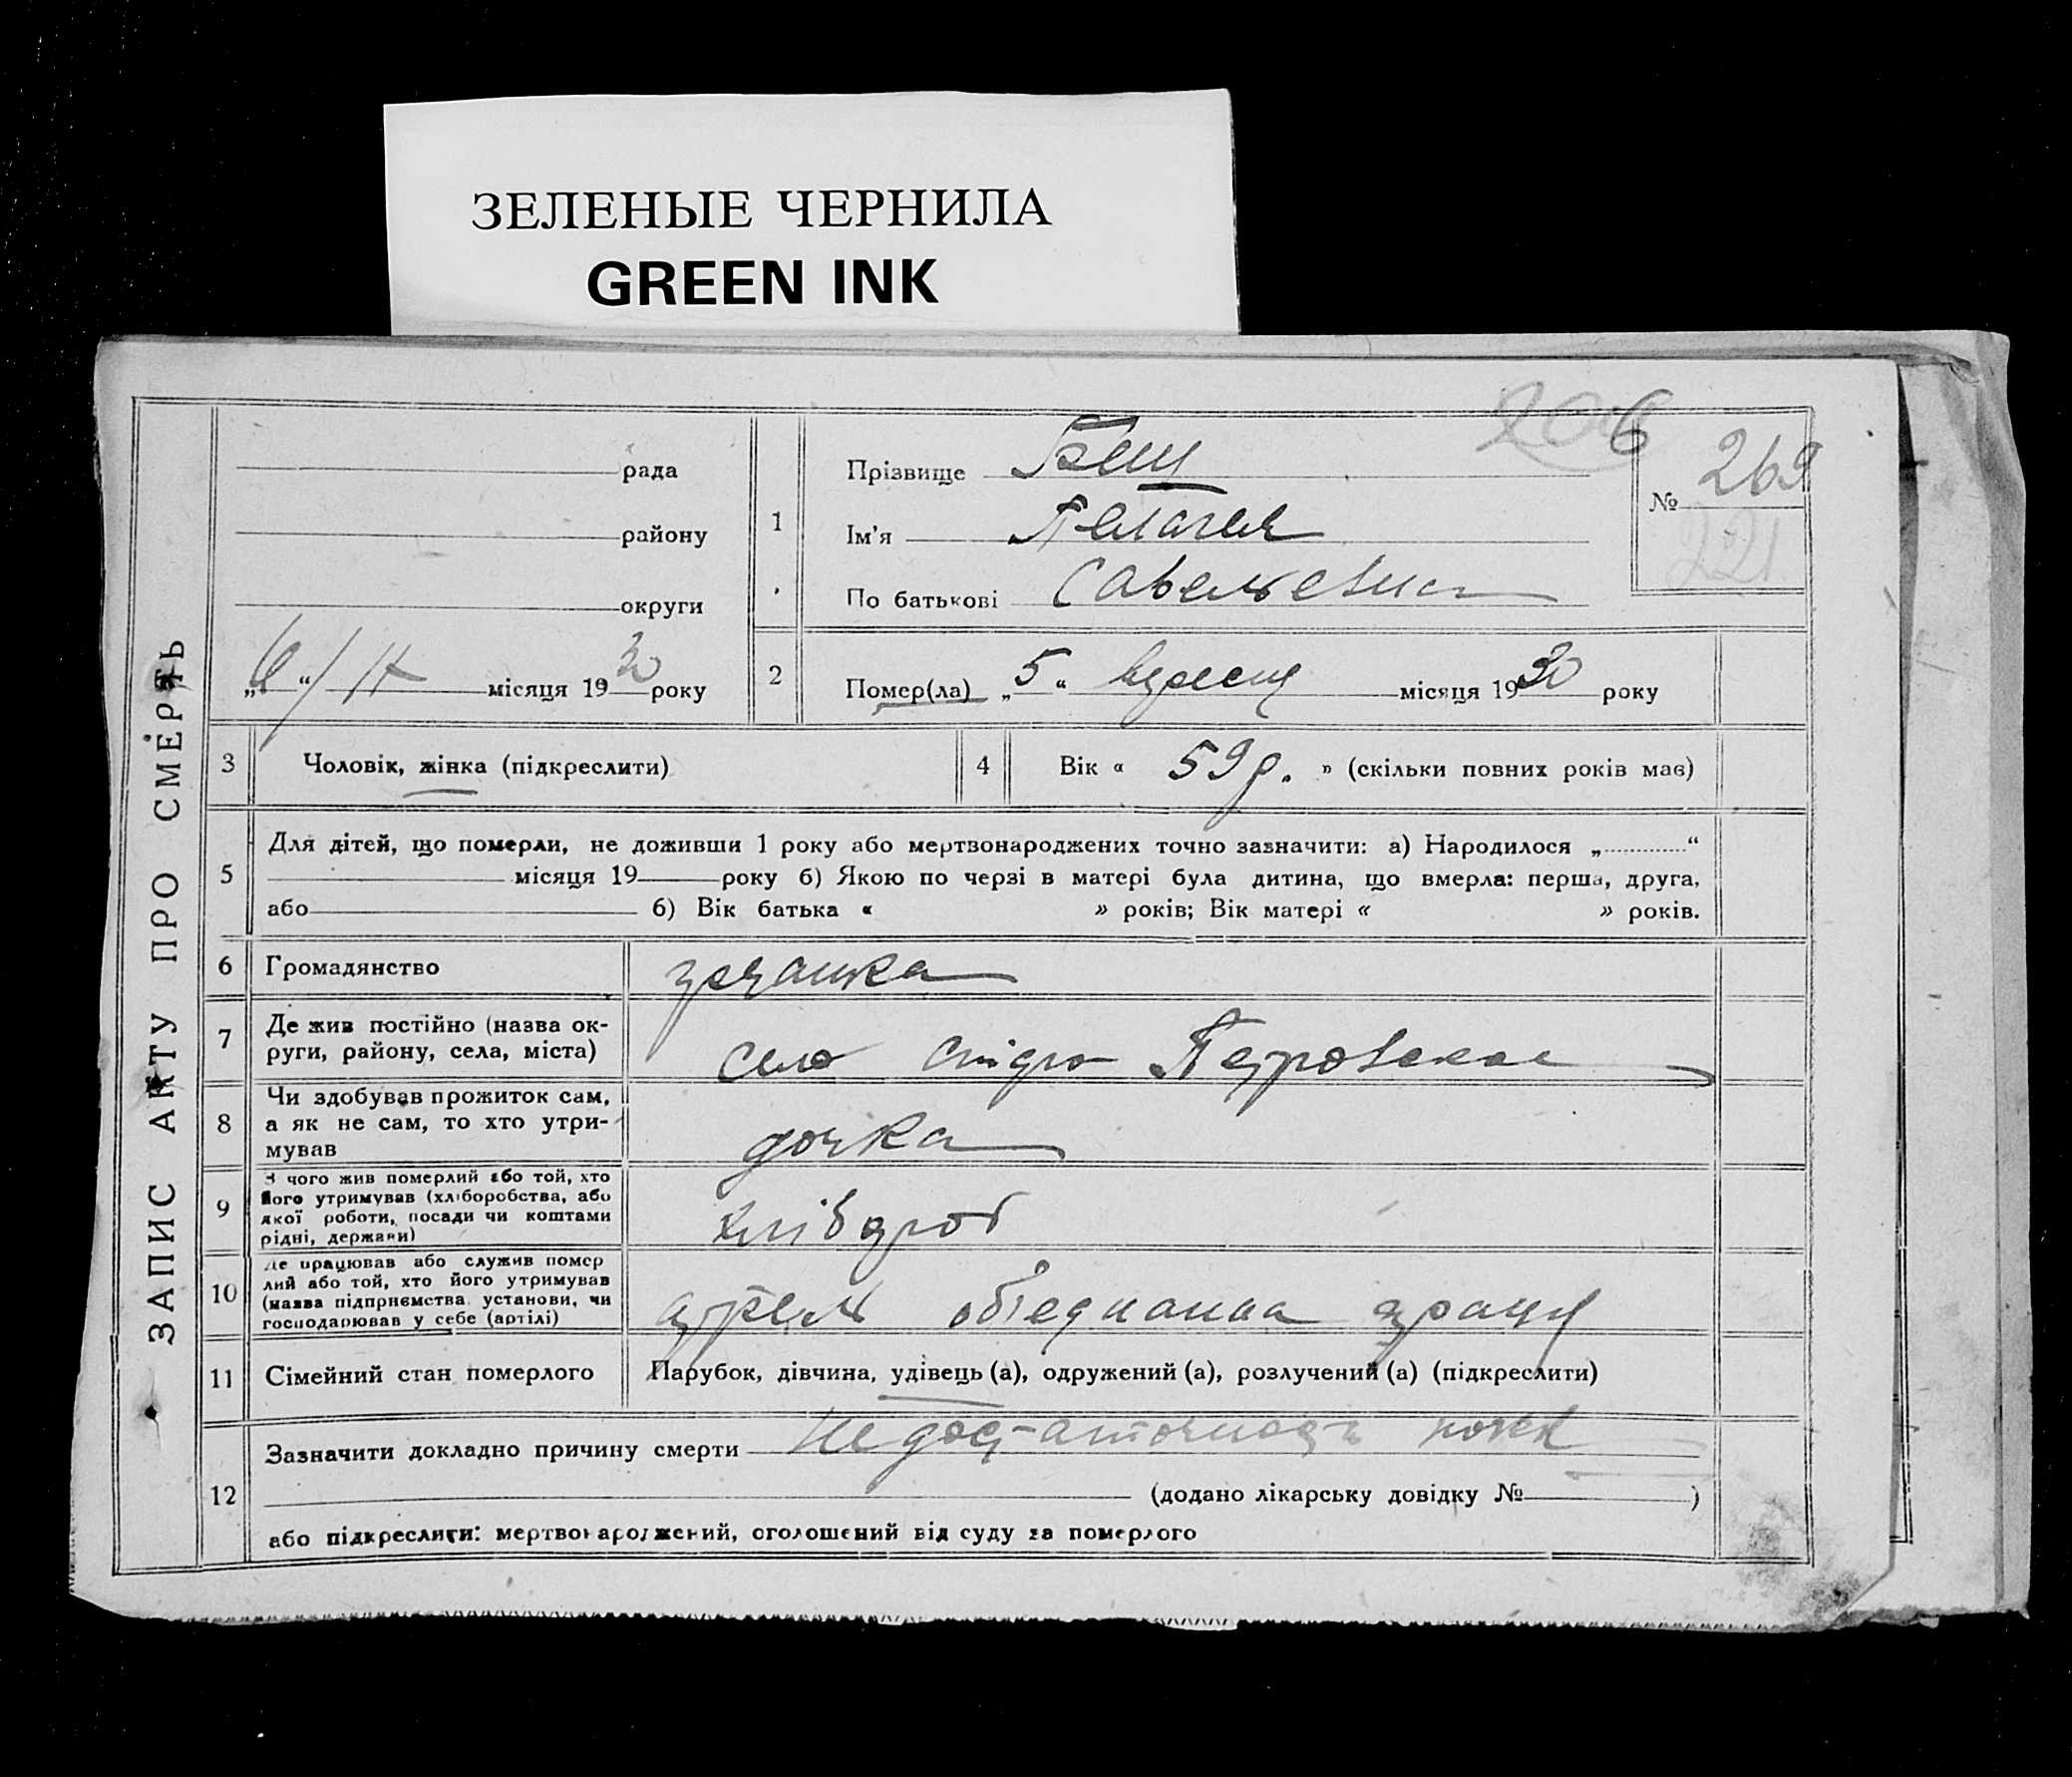 ЗЕЛЕНЫЕ ЧЕРНИЛА
GREEN INK
206
ЗАПИС АКТУ ПРО СМЕРТЬ
рада
району
округи
6/ІХ місяця 1930 року
1
Прізвище Бещ
Ім'я Пелагея
По батькові Савельевна
№ 269
221
2
Помер(ла) „5“ вересня місяця 1930 року
3 Чоловік, жінка (підкреслити)
4 Вік « 59 р. » (скільки повних років мав)
5
Для дітей, що померли, не доживши 1 року або мертвонароджених точно зазначити: а) Народилося „ “
місяця 19 року б) Якою по черзі в матері була дитина, що вмерла: перша, друга,
або б) Вік батька « » років; Вік матері « » років.
6 Громадянство
7
Де жив постійно (назва ок-
руги, району, села, міста)
село старо Петровское
8
Чи здобував прожиток сам,
а як не сам, то хто утри-
мував
дочка
9
З чого жив померлий або той, хто
його утримував (хліборобства, або
якої роботи, посади чи коштами
рідні, держави)
хлібороб
10
Де працював або служив помер
лий або той, хто його утримував
(назва підприємства установи, чи
господарював у себе (артілі)
артель об'еднання праця
11 Сімейний стан померлого
Парубок, дівчина, удівець (а), одружений (а), розлучений (а) (підкреслити)
12
Зазначити докладно причину смерти недостаточность почек
(додано лікарську довідку № )
або підкреслити: мертвонароджений, оголошений від суду за померлого